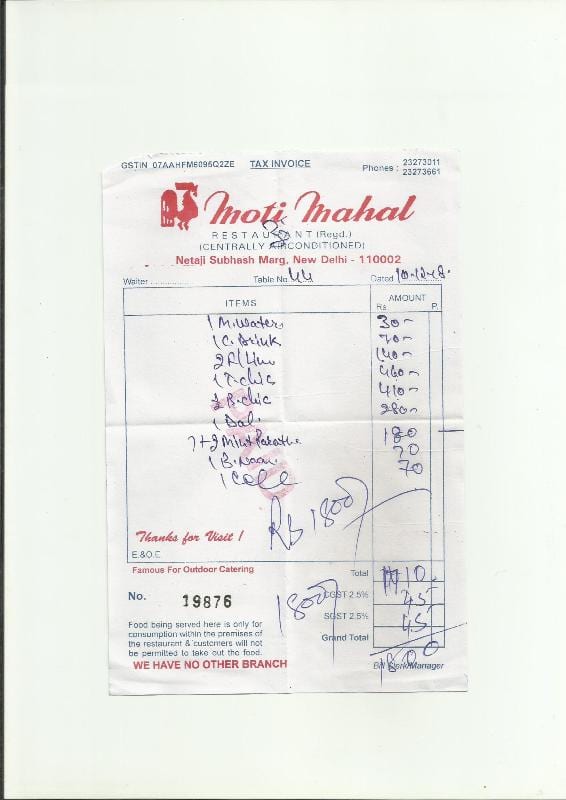 GSTIN 07AAHFM6095Q2ZE TAX INVOICE Phones : 23273011
23273661
Moti Mahal
RESTAURANT (Regd.)
(CENTRALLY AIRCONDITIONED)
Netaji Subhash Marg, New Delhi - 110002
Waiter Table No. 44 Dated 10-12-18.
ITEMS AMOUNT
Rs. P.
1 M. Water 30-
1 C. Drink 70-
140-
1 T. chic 460-
B. chic 410-
1 Dal 280-
1+2 Mint Paratha 180
1 B. Naan 70
1 70
PAID
Rs 1800/
Thanks for Visit !
E.&O.E.
Famous For Outdoor Catering
Total 1710.
No. 19876
1800/
CGST 2.5% 45
SGST 2.5% 45
Grand Total 1800
Food being served here is only for
consumption within the premises of
the restaurant & customers will not
be permitted to take out the food.
WE HAVE NO OTHER BRANCH
Bill Clerk/Manager